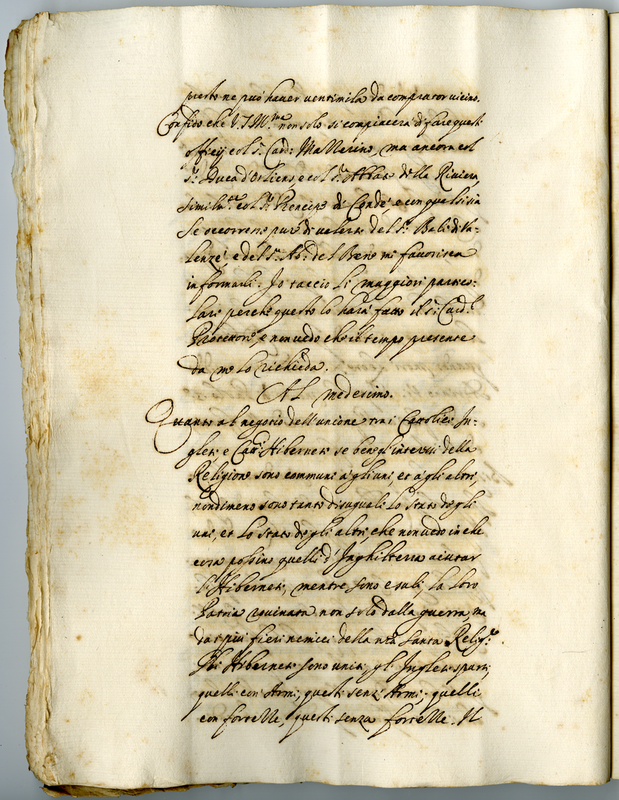 presto ne può haver ventimila da comprator vicino.
Confido che V.S. Ill.ma non solo si compiacerà di fare questi
officij col S.r Card: Mazzarino, ma ancora col
S.r Duca d'Orliens, e col S.r Abbate della Riviera
simil.te col S.r Prencipe di Condè, e con qual si sia
se occorrerà pure di valersi del S.r Balì di Va-
lenzè, e del S.r Ab: del Bene mi favorirà
informarli. Io taccio li maggiori partico-
lari perche questo lo harà fatto il S.r Card.l
Protettore, e non vedo che il tempo presente
da me lo richieda.
Al medesimo.
Quanto al negotio dell'unione tra i Catolici In-
glesi e Catt.i Hibernesi se bene gl'interessi della
Religione sono communi à gli uni, et à gli altri,
nondimeno sono tanto disuguali lo stato degli
uni, et lo stato degli altri, che non vedo in che
cosa possino quelli d'Inghilterra aiutar
l'Hibernesi, mentre sono esuli, la loro
Patria rovinata non solo dalla guerra, ma
da i più fieri nemici della n.ra santa Relig.e
Gli Hibernesi sono uniti, gl'Inglesi sparsi,
quelli con Armi, questi senz'Armi, quelli
con fortezze, questi senza fortezze. Il